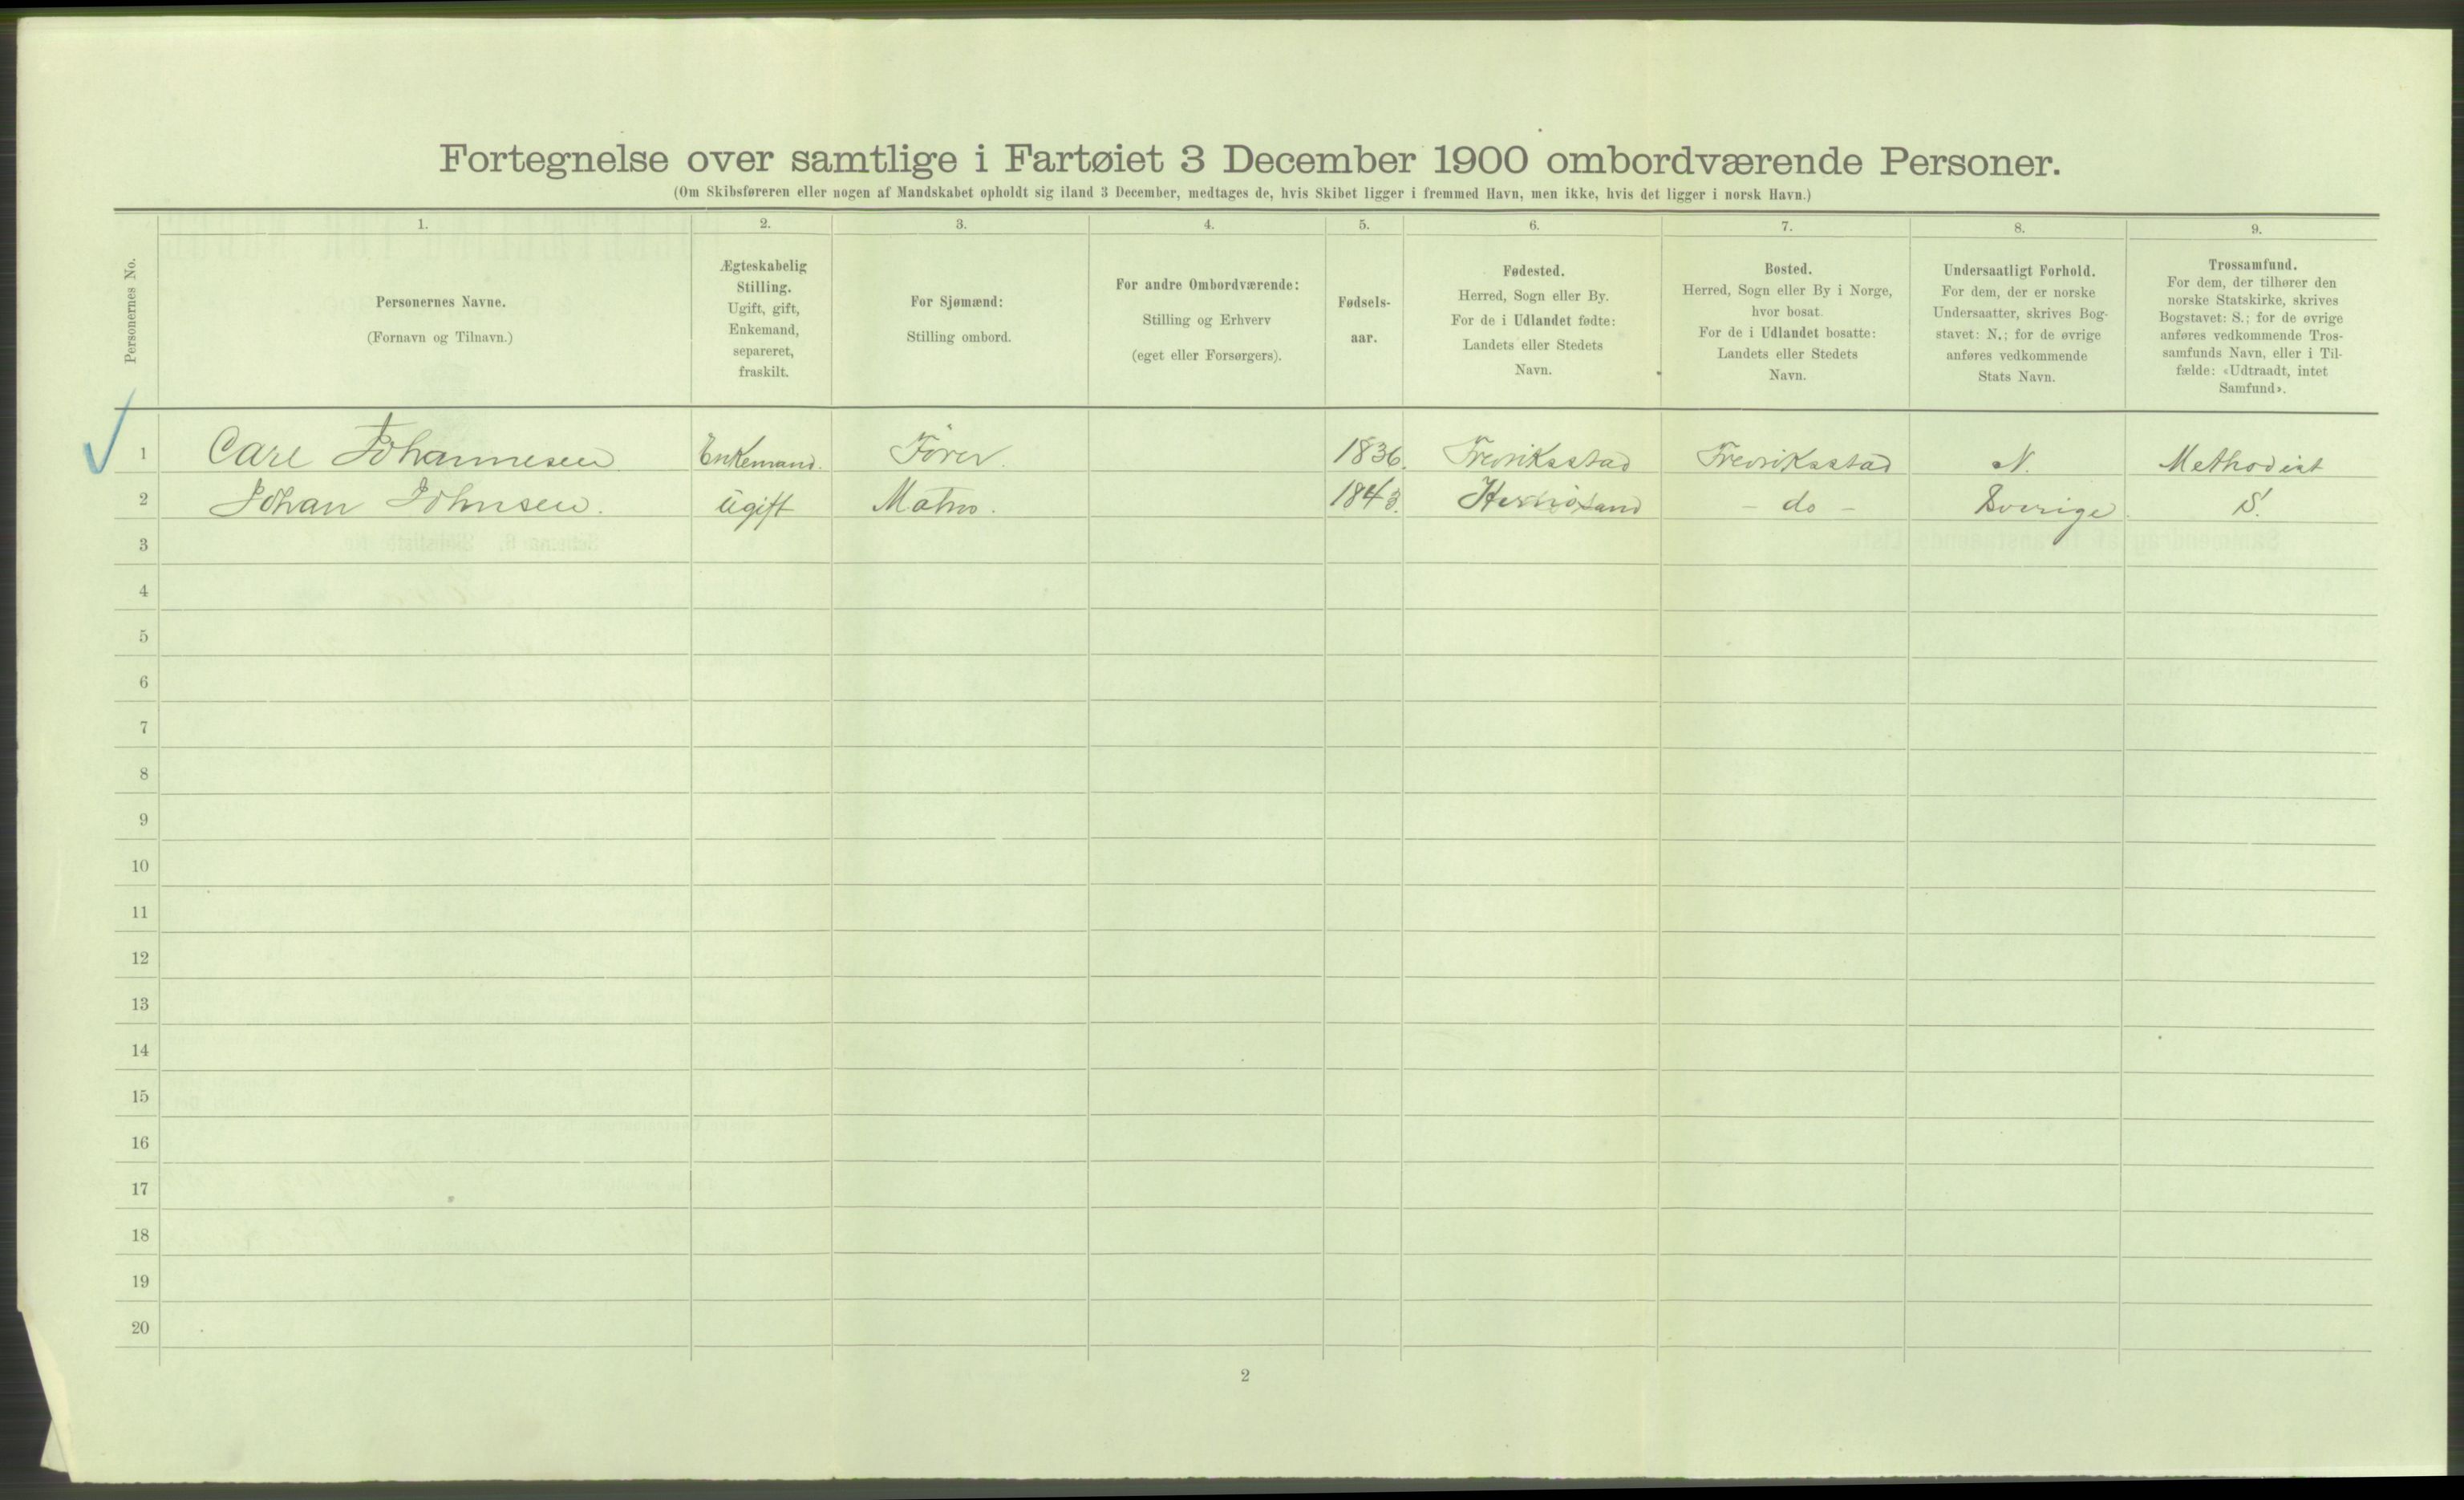 Fortegnelse over samtlige i Fartøiet 3 December 1900 ombordværende Personer.
(Om Skibsføreren eller nogen af Mandskabet opholdt sig iland 3 December, medtages de, hvis Skibet ligger i fremmed Havn, men ikke, hvis det ligger i norsk Havn.)
Personernes No.
1.
Personernes Navne.
(Fornavn og Tilnavn.)
2.
Ægteskabelig
Stilling.
Ugift, gift,
Enkemand,
separeret,
fraskilt.
3.
For Sjømænd:
Stilling ombord.
4.
For andre Ombordværende:
Stilling og Erhverv
(eget eller Forsørgers).
5.
Fødsels-
aar.
6.
Fødested.
Herred, Sogn eller By.
For de i Udlandet fødte:
Landets eller Stedets
Navn.
7.
Bosted.
Herred, Sogn eller By i Norge,
hvor bosat.
For de i Udlandet bosatte:
Landets eller Stedets
Navn.
8.
Undersaatligt Forhold.
For dem, der er norske
Undersaatter, skrives Bog-
stavet: N.; for de øvrige
anføres vedkommende
Stats Navn.
9.
Trossamfund.
For dem, der tilhører den
norske Statskirke, skrives
Bogstavet: S.; for de øvrige
anføres vedkommende Tros-
samfunds Navn, eller i Til-
fælde: «Udtraadt, intet
Samfund».
1 Carl Johannesen Enkemand. Fører. 1836. Fredriksstad Fredriksstad N. Methodist
2 Johan Johnsen. ugift Matro. 1843. Hernösand - do - Sverige. S.
3
4
5
6
7
8
9
10
11
12
13
14
15
16
17
18
19
20
2